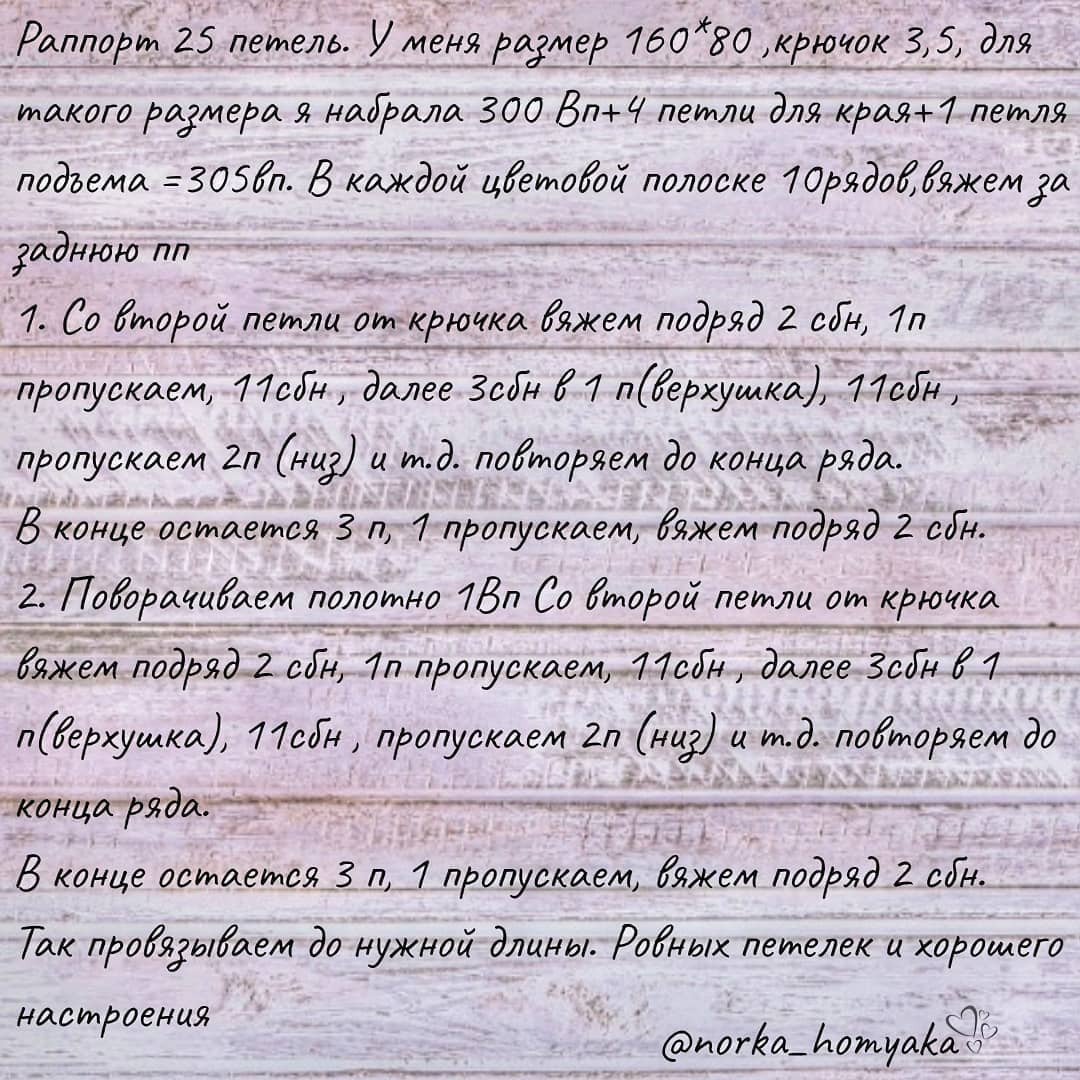 Раппорт 25 петель. У меня размер 160*80 ,крючок 3,5, для
такого размера я набрала 300 Вп+4 петли для края+1 петля
подъема =305вп. В каждой цветовой полоске 10рядов,вяжем за
заднюю пп
1. Со второй петли от крючка вяжем подряд 2 сбн, 1п
пропускаем, 11сбн , далее 3сбн в 1 п(верхушка), 11сбн ,
пропускаем 2п (низ) и т.д. повторяем до конца ряда.
В конце остается 3 п, 1 пропускаем, вяжем подряд 2 сбн.
2. Поворачиваем полотно 1Вп Со второй петли от крючка
вяжем подряд 2 сбн, 1п пропускаем, 11сбн , далее 3сбн в 1
п(верхушка), 11сбн , пропускаем 2п (низ) и т.д. повторяем до
конца ряда.
В конце остается 3 п, 1 пропускаем, вяжем подряд 2 сбн.
Так провязываем до нужной длины. Ровных петелек и хорошего
настроения
@norka_homyaka